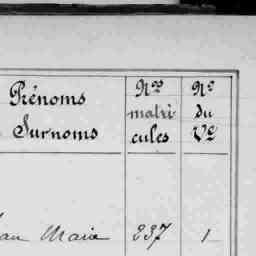 Prénoms
Surnoms
Nos
matri
cules
No
du
Ve
Marie 237 1